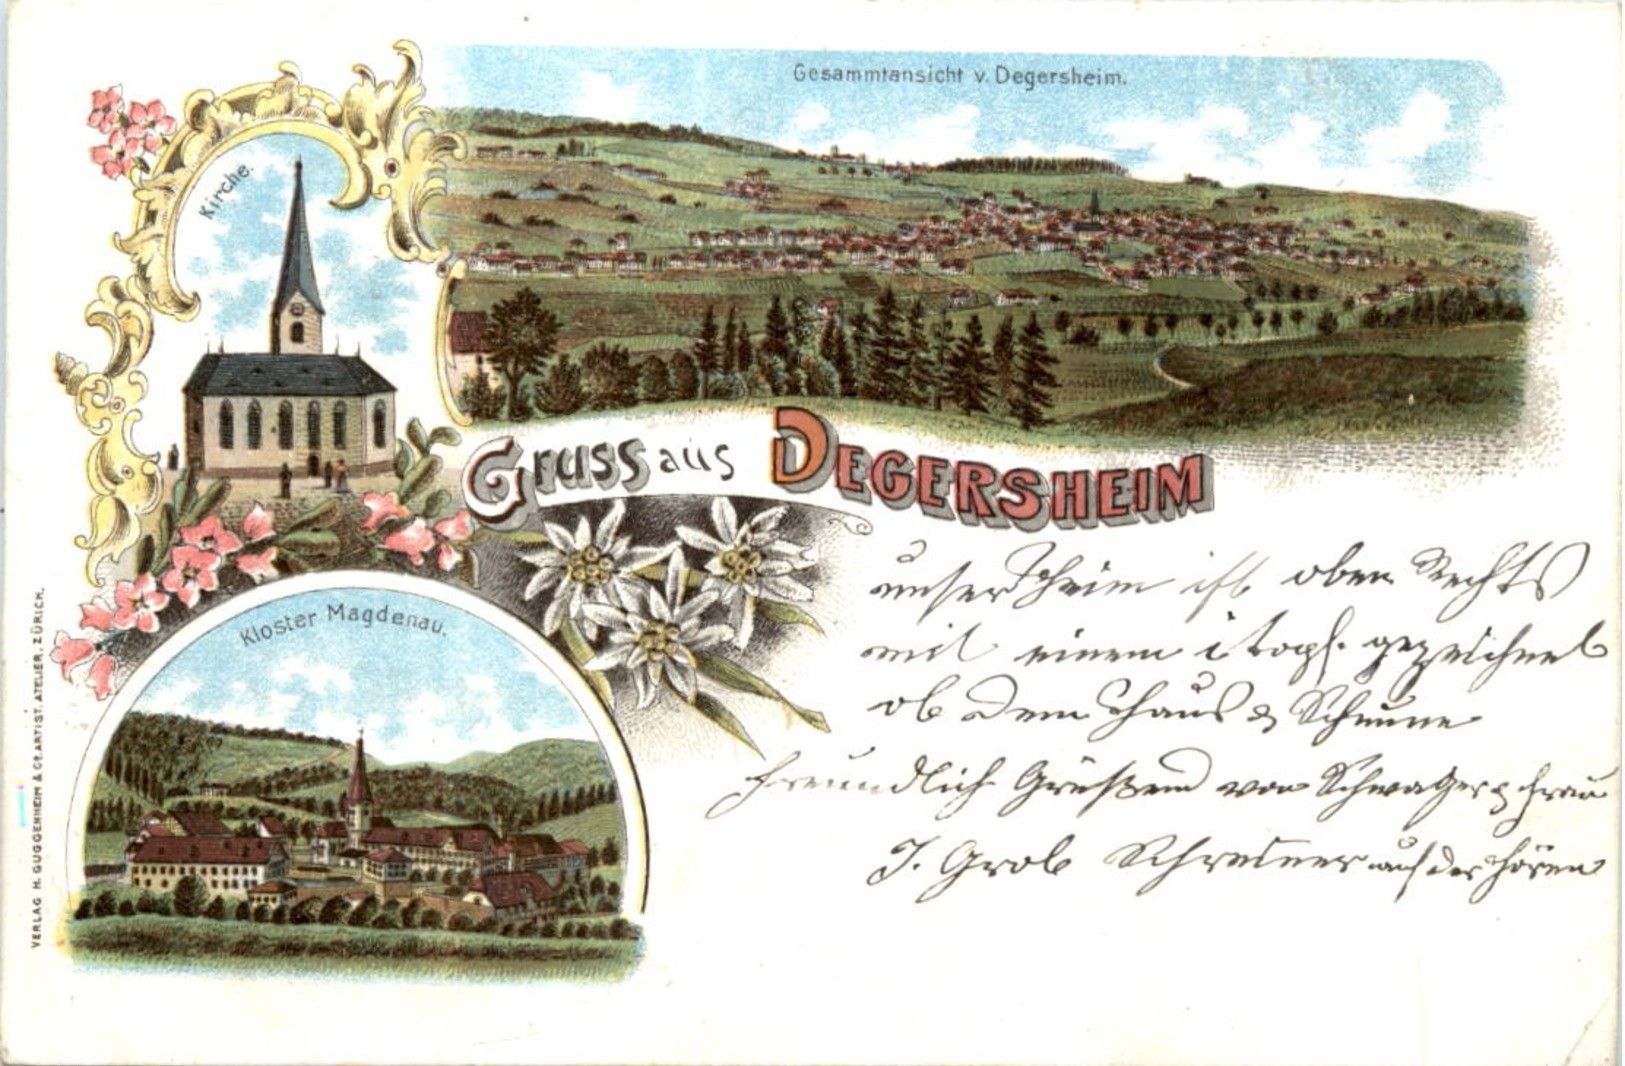 Gesammtansicht v. Degersheim.
Kirche.
Gruss aus Degersheim
Kloster Magdenau.
unser Heim ist oben Rechts
mit einem i topf. gezeichnet
ob dem Haus & Scheune
freundlich Grüßend von Schwager & Frau
J. Grob Schreiner auf der Hören
VERLAG H. GUGGENHEIM & Co. ARTIST. ATELIER, ZÜRICH.